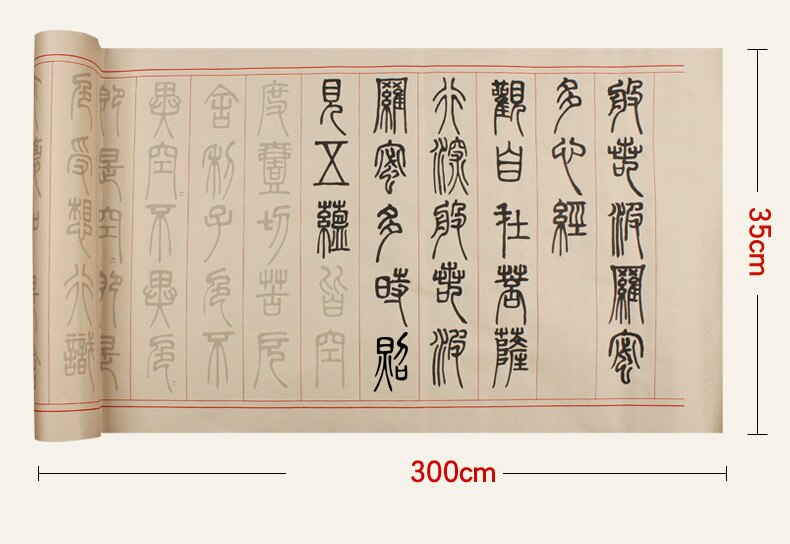 般若波羅蜜
多心經
觀自在菩薩
行深般若波
羅蜜多時照
見五蘊皆空
度壹切苦厄
舍利子色不
異空〻不異色〻
即是空即是
色受想行識
35cm
300cm